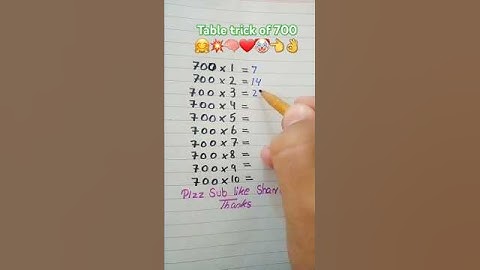 Table trick of 700
🤗💥🧠❤️🤡👈👌
700 x 1 = 7
700 x 2 = 14
700 x 3 = 2
700 x 4 =
700 x 5 =
700 x 6 =
700 x 7 =
700 x 8 =
700 x 9 =
700 x 10 =
Plzz Sub like Shar
Thanks